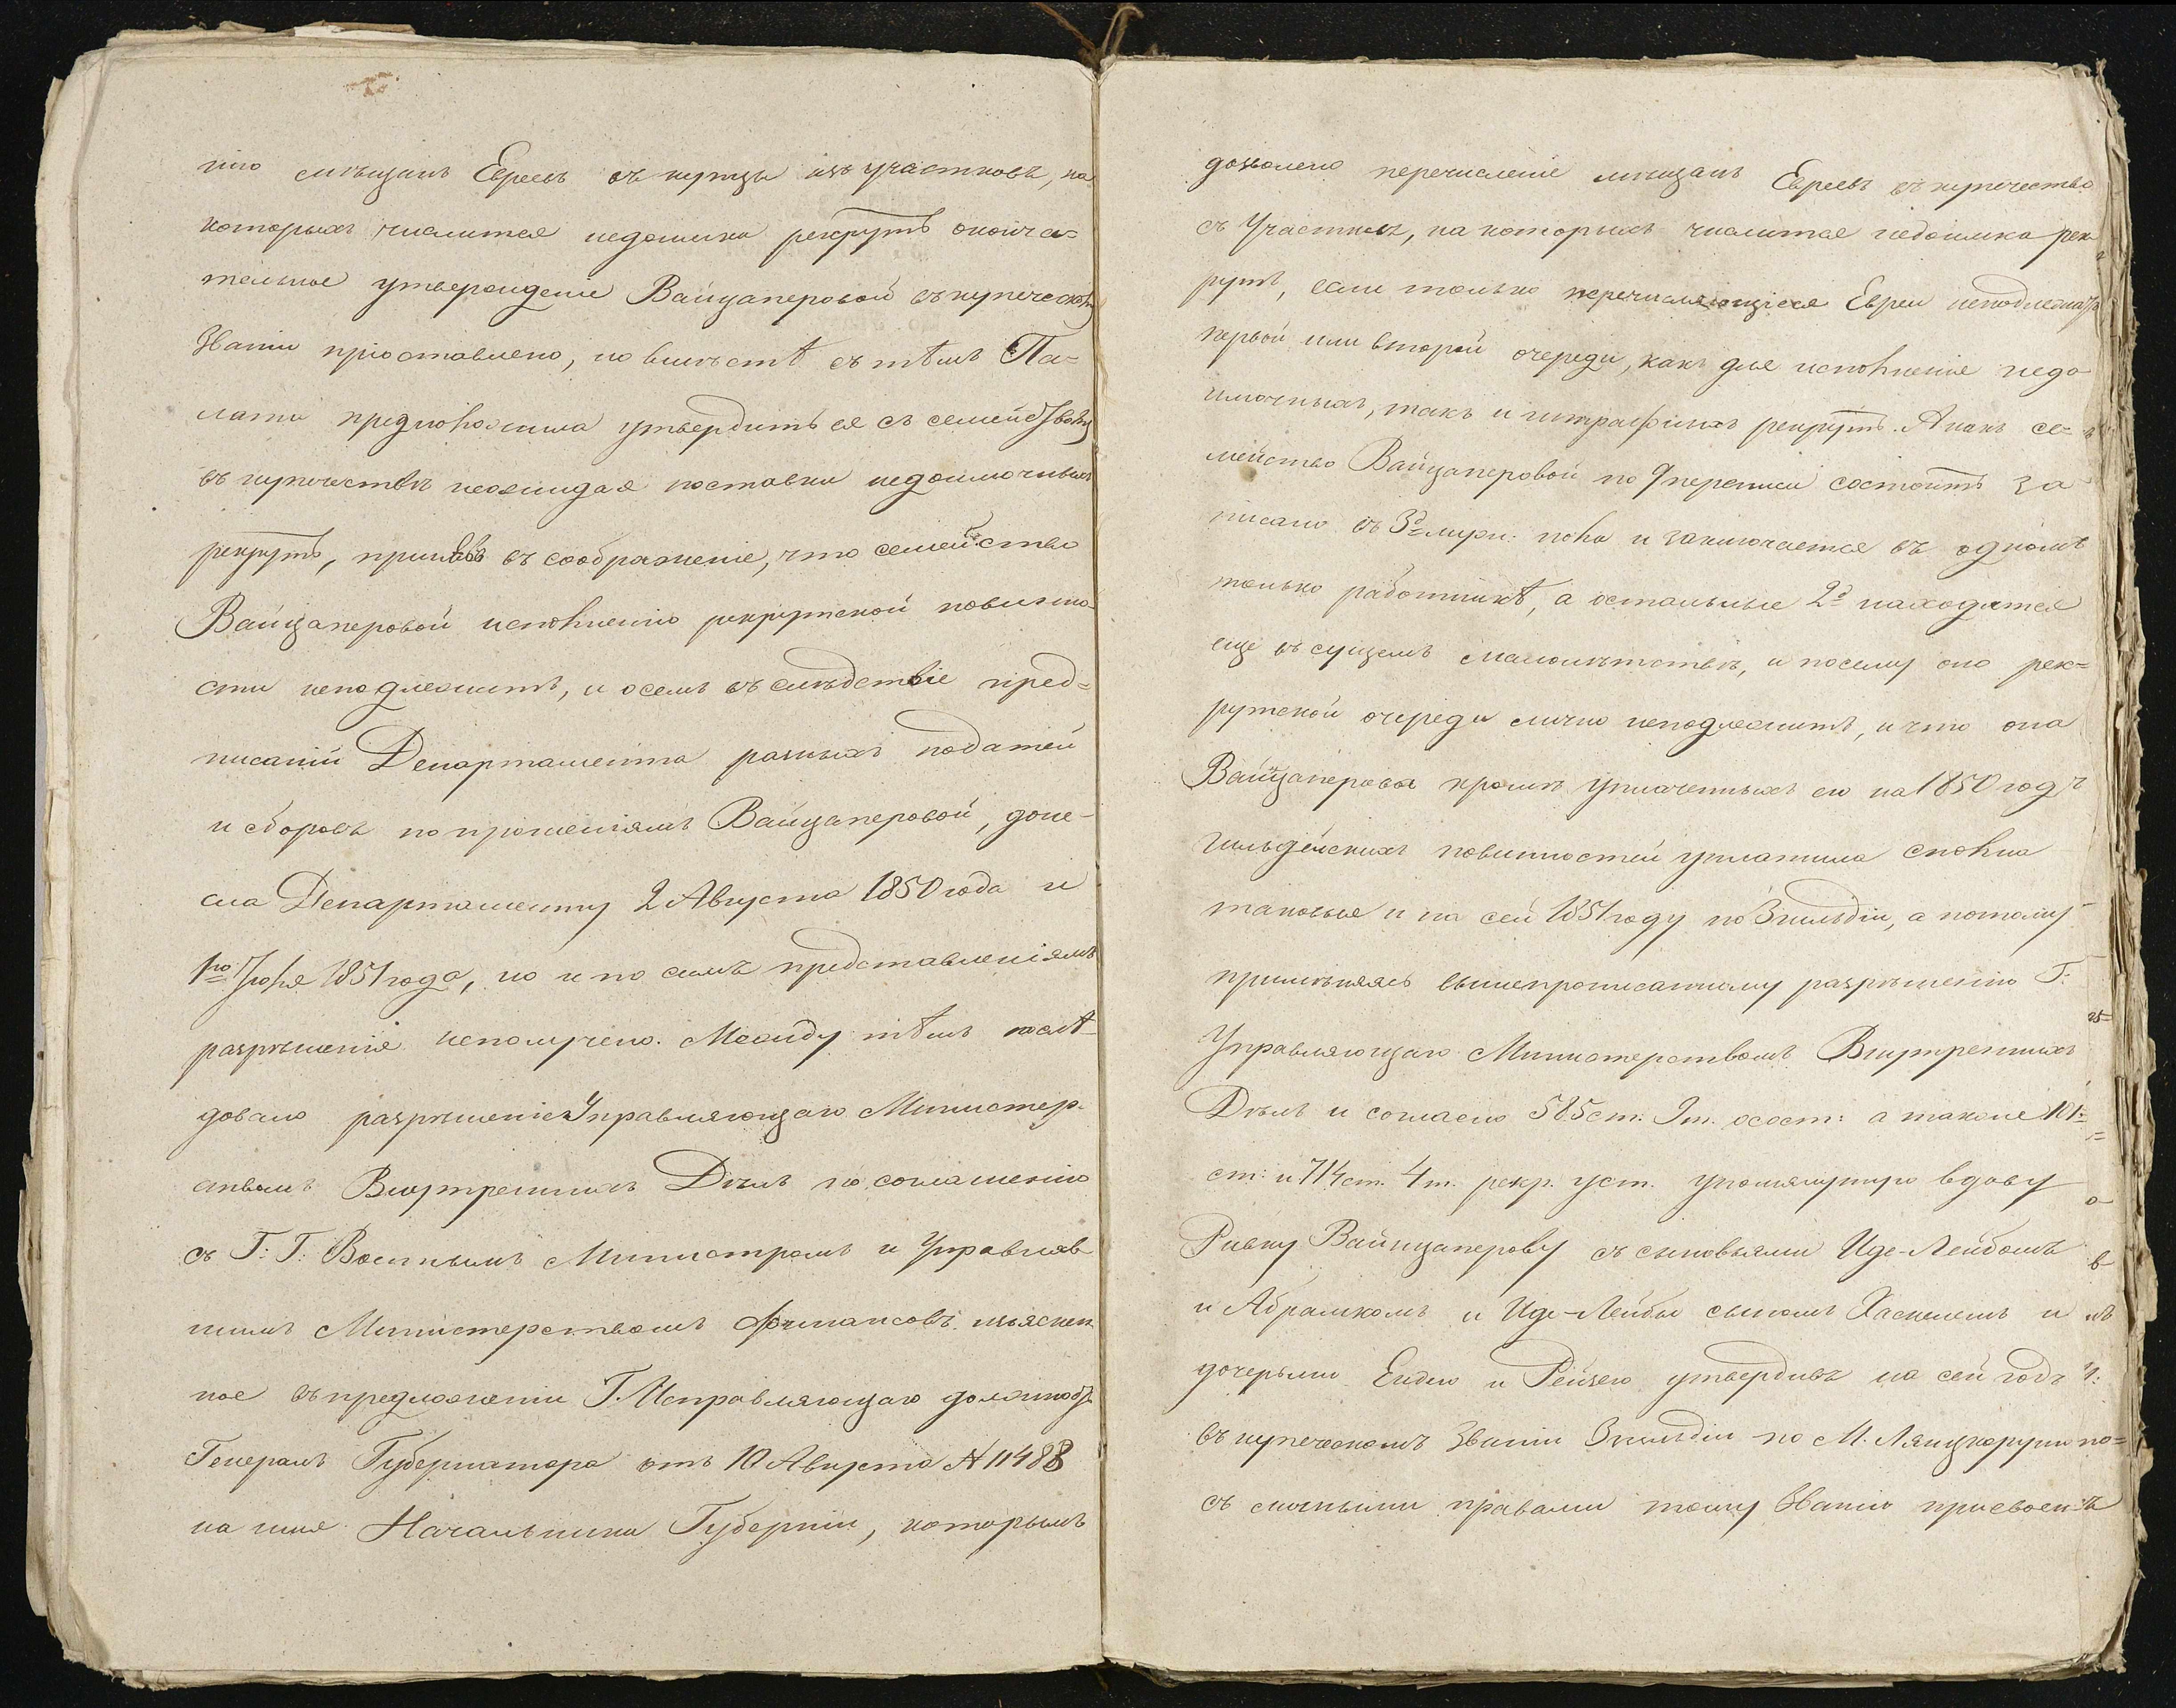 нію мѣщанъ Евреевъ въ купцы изъ участковъ, на
которыхъ числится недоимка рекрутъ оконча=
тельное утвержденіе Вайцаперовой въ купеческомъ
званіи пріоставлено, но вмѣстѣ съ тѣмъ Па=
лата предположила утвердить ея съ семействомъ
въ купечествѣ неожидая поставки недоимочныхъ
рекрутъ, принявъ въ соображеніе, что семейство
Вайцаперовой исполненію рекрутской повинно-
сти неподлежитъ, и осемъ въ слѣдствіе пред=
писаній Департамента разныхъ податей
и сборовъ по прошеніямъ Вайцаперовой, доне-
сла Департаменту 2 Августа 1850 года и
1го Іюля 1851 года, но и по симъ представленіямъ
разрѣшенія неполучено. Между тѣмъ послѣ-
довало разрѣшеніе Управляющаго Министер-
ствомъ Внутреннихъ Дѣлъ по соглашенію
съ Г: Г: Военнымъ Министромъ и Управляв
шимъ Министерствомъ Финансовъ изъяснен
ное въ предложеніи Г. Исправляющаго должность
Генералъ Губернатора отъ 10 Августа № 11488
на имя Начальника Губерніи, которымъ
дозволено перечисленіе мѣщанъ Евреевъ въ купечество
съ Участковъ, на которыхъ числится недоимка рек
рутъ, если только перечисляющіеся Евреи неподлежатъ
первой или второй очереди, какъ для исполненія недо
имочныхъ, такъ и штрафныхъ рекрутъ. А какъ се=
мейство Вайцаперовой по 9 переписи состоитъ за
писано въ 3д мурж: пола и заключается въ одномъ
только работникѣ, а остальные 2д находятся
еще въ сущемъ малолѣтствѣ, и посему оно рек=
рутской очереди лично неподлежитъ, и что она
Вайцаперова кромѣ уплаченныхъ ею на 1850 годъ
гильдейскихъ повинностей уплатила сполна
таковые и на сей 1851 году по 3 гильдіи, а потому
примѣняясь вышепрописанному разрѣшенію Г:
Управляющаго Министерствомъ Внутреннихъ
Дѣлъ и согласно 585 ст. 9 т. о сост: а также 101=
ст: и 714 ст. 4 т. рекр. уст. упомянутую вдову
Ривку Вайнцаперову съ сыновьями Иде-Лейбомъ
и Абрамкомъ и Иде-Лейбы сыномъ Хаскелемъ и
дочерьми Ендею и Рейзею утвердивъ на сей годъ
въ купеческомъ званіи 3 гильдіи по М. Ляцкоруни
съ личными правами тому званію присвоен